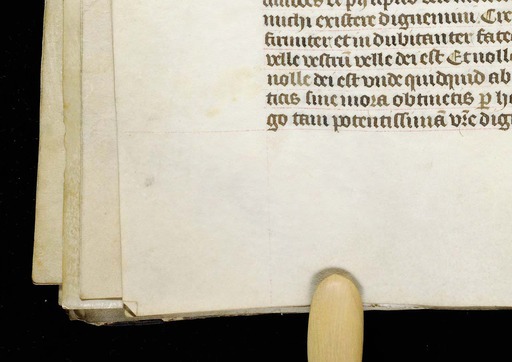 michi existere dignemini. Cre
firmiter et indubitanter fate
velle vestrū velle dei est Et nolle
nolle dei est vnde quidquid ab
ticis sine mora obtinetis ꝑ h
go tam potentissimā vr̄e dig